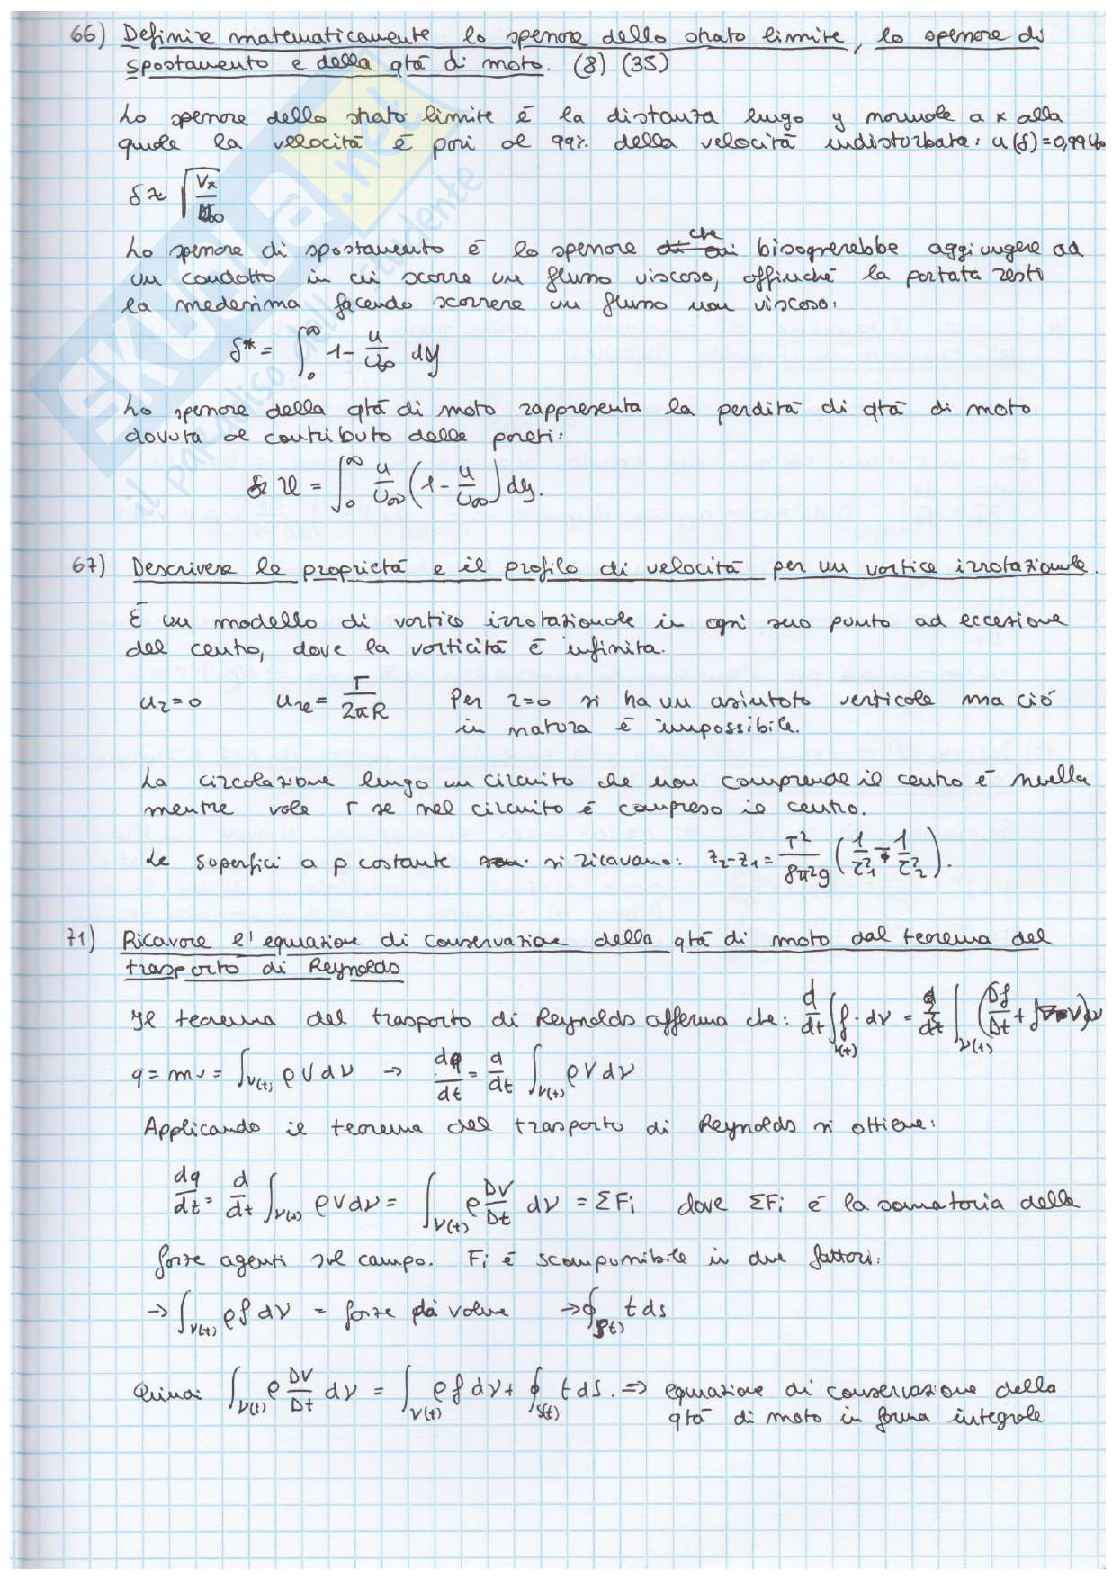 66) Definire matematicamente lo spessore dello strato limite, lo spessore di
spostamento e della qtà di moto. (8) (35)
Lo spessore dello strato limite è la distanza lungo y normale a x alla
quale la velocità è pari al 99% della velocità indisturbata: u(δ)=0,99U∞
δ ≈ √(νx/U∞)
Lo spessore di spostamento è lo spessore che bisognerebbe aggiungere ad
un condotto in cui scorre un flusso viscoso, affinché la portata resti
la medesima facendo scorrere un flusso non viscoso:
δ* = ∫₀^∞ 1 - u/U∞ dy
Lo spessore della qtà di moto rappresenta la perdita di qtà di moto
dovuta al contributo delle pareti:
ϑ = ∫₀^∞ u/U∞ (1 - u/U∞) dy.
67) Descrivere le proprietà e il profilo di velocità per un vortice irrotazionale.
È un modello di vortice irrotazionale in ogni suo punto ad eccezione
del centro, dove la vorticità è infinita.
u_z=0 u_ϑ = Γ/2πR Per r=0 si ha un asintoto verticale ma ciò
in natura è impossibile.
La circolazione lungo un circuito che non comprende il centro è nulla
mentre vale Γ se nel circuito è compreso il centro.
Le superfici a p costante si ricavano: z₂-z₁ = Γ²/8π²g (1/r₁² - 1/r₂²).
71) Ricavare l'equazione di conservazione della qtà di moto dal teorema del
trasporto di Reynolds
Il teorema del trasporto di Reynolds afferma che: d/dt ∫_V(t) f · dV = d/dt ∫_V(t) (Df/Dt + f∇V) dV
q = mv = ∫_V(t) ρVdV → dq/dt = d/dt ∫_V(t) ρVdV
Applicando il teorema del trasporto di Reynolds si ottiene:
dq/dt = d/dt ∫_V(t) ρVdV = ∫_V(t) ρ DV/Dt dV = ΣFi dove ΣFi è la somatoria delle
forze agenti sul campo. Fi è scomponibile in due fattori:
→ ∫_V(t) ρf dV = forze di volume → ∮_S(t) t ds
Quindi: ∫_V(t) ρ DV/Dt dV = ∫_V(t) ρf dV + ∮_S(t) t ds. ⇒ equazione di conservazione della
qtà di moto in forma integrale
SKUOLA.net
il paradiso dello studente